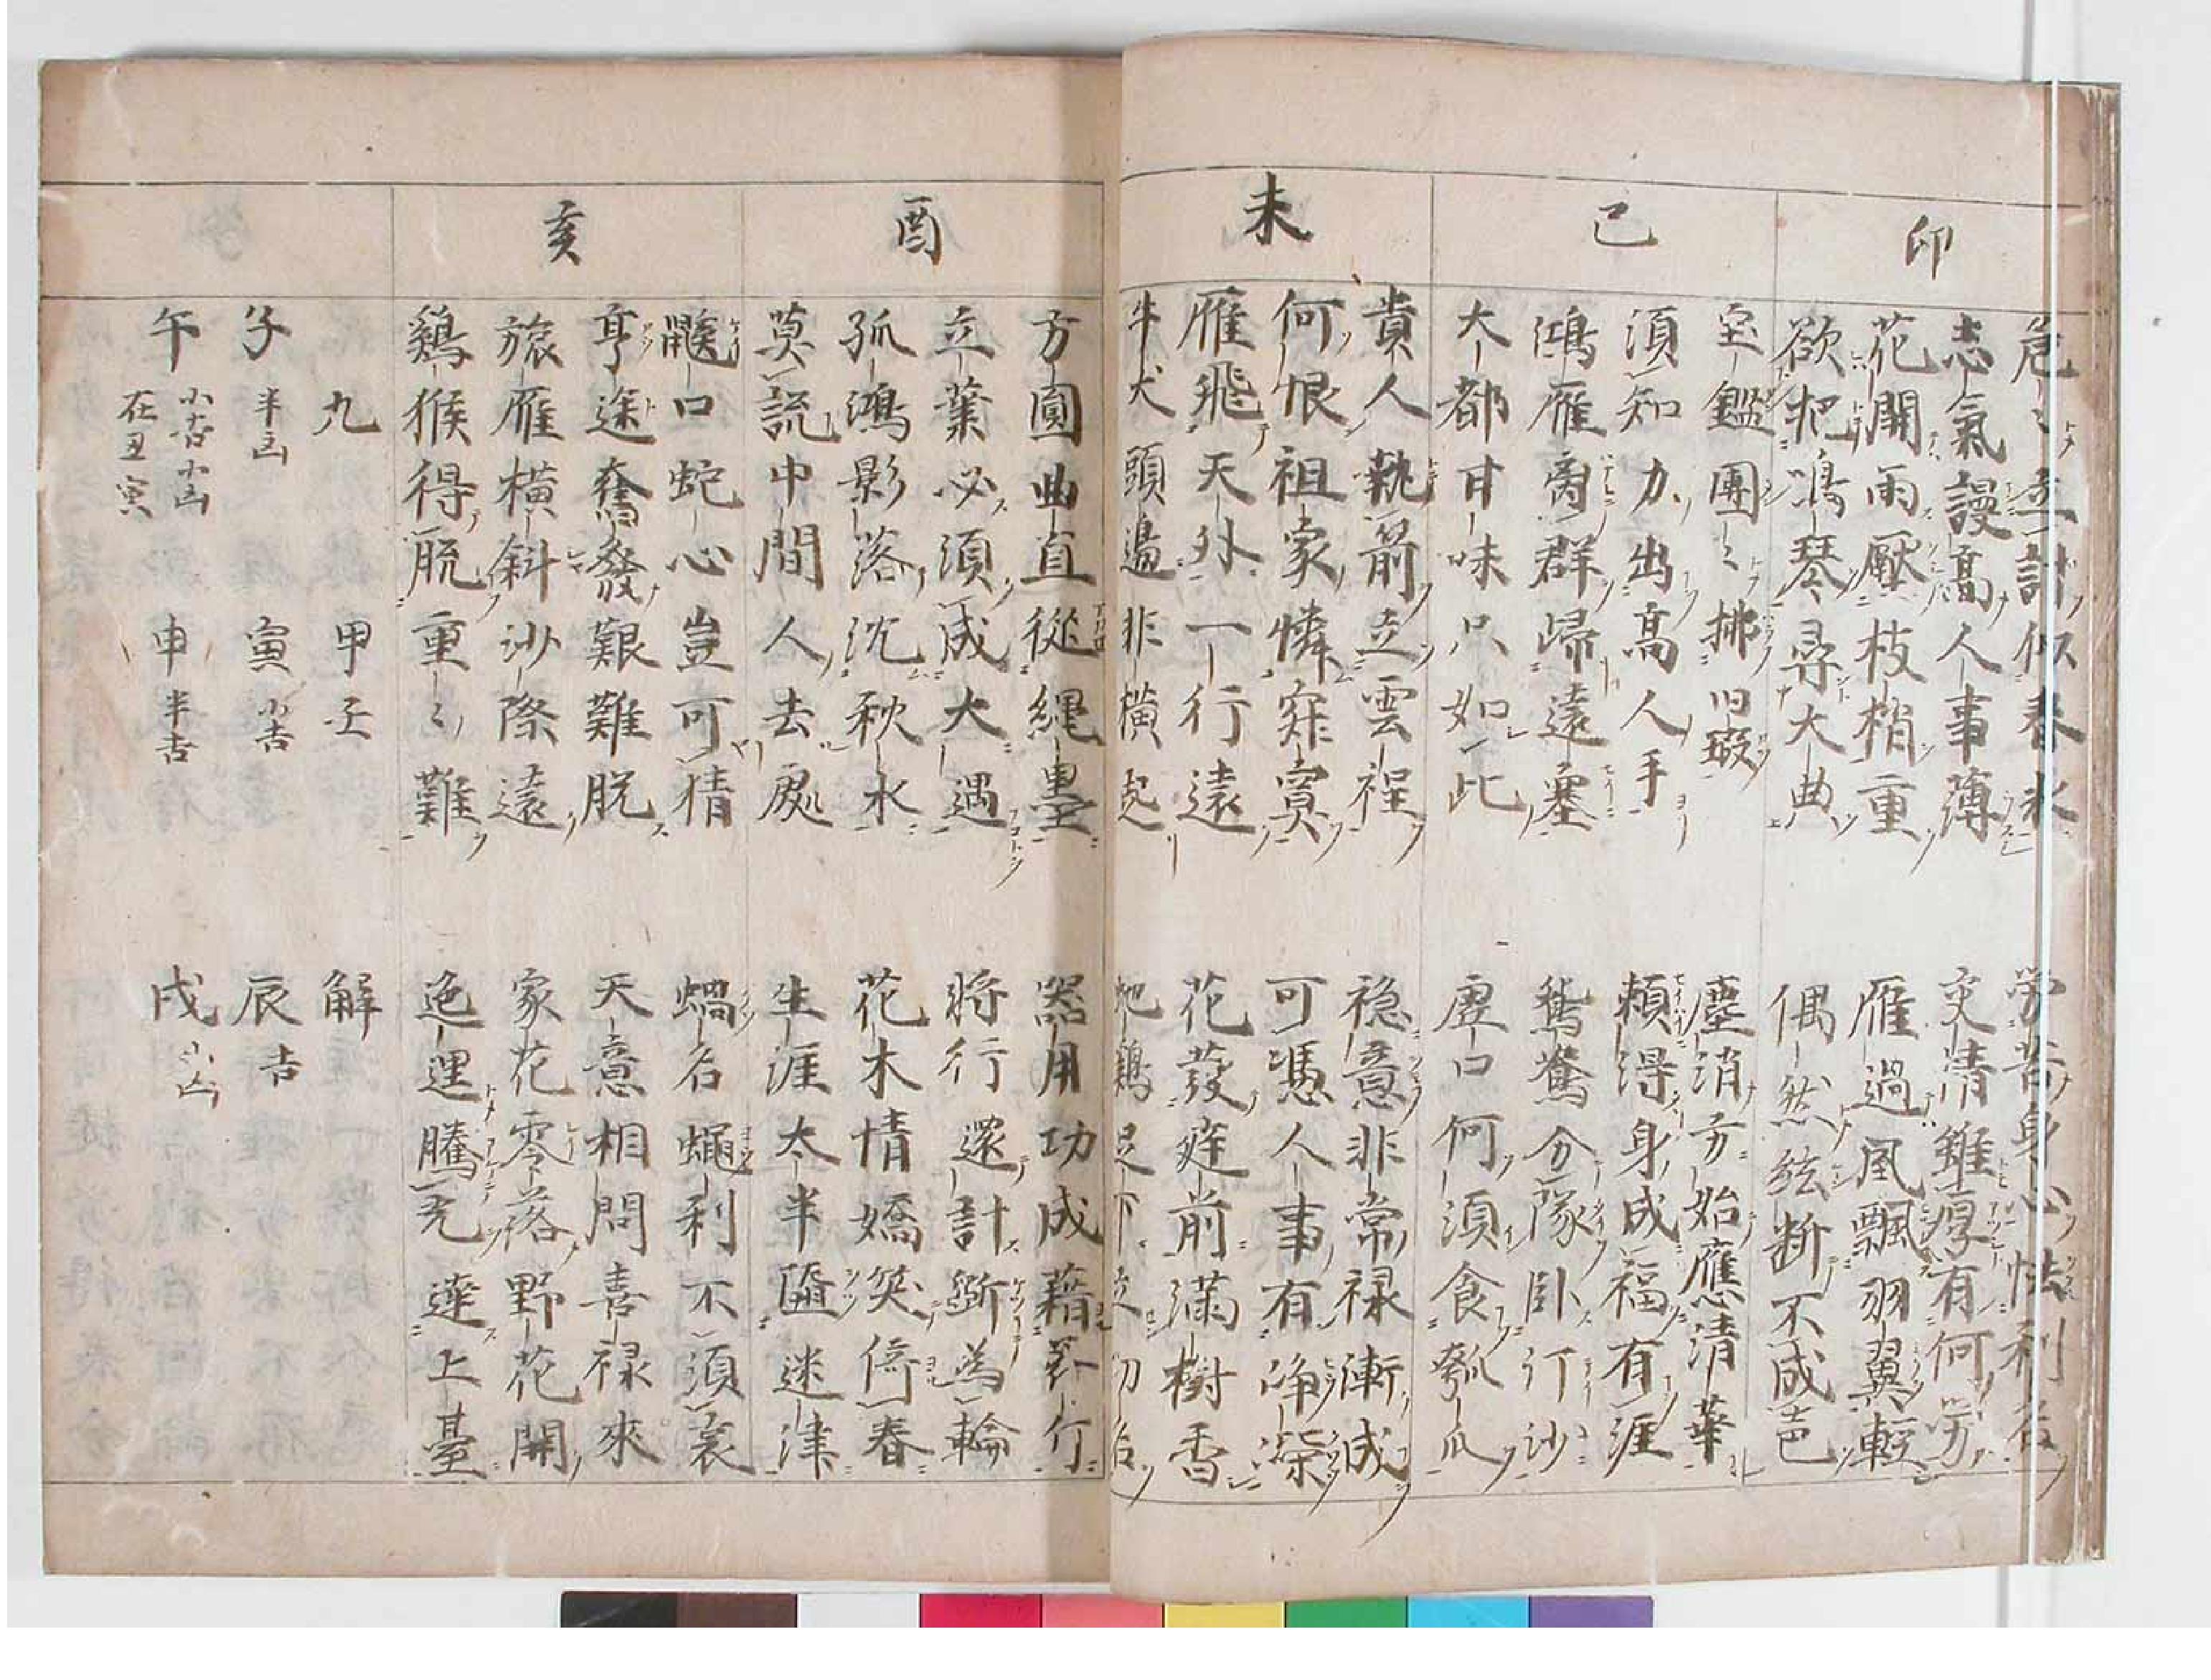 卯
危〻立計似春氷
労苦身心怯利名
志氣謾高人事薄
交清雖厚有何労
花開雨壓枝梢重
雁過風飄羽翼輕
欲把鳴琴尋大曲
偶然絃断不成芭
已
宝鑑團〻拂旧瑕
塵消方始應清華
須知力出高人手
頼得身成福有涯
鴻雁离群歸遠塞
鵞鴦分隊卧汀沙
大都甘味只如此
虚口何須食瓠瓜
未
貴人執箭立雲程
稳意非常禄漸成
何恨祖家憐窂寞
可憑人事有峥嵘
雁飛天外一行遠
花發庭前滿樹香
牛犬頭邉非横起
地鶏足下立功名
酉
方圓曲直從繩墨
器用功成藉剪行
立葉必須成大遇
將行還計斵為輪
孤鴻影落沈秋水
花木情嬌笑倚春
莫説中間人去處
生涯太半匿迷津
亥
鼷口蛇心豈可猜
蝸名蠅利不須裏
亨途奮發艱難脱
天意相問喜禄來
旅雁横斜沙際遠
家花零落野花開
鷄猴得脱重〻難
迤逦騰身達上臺
九
甲子
解
子 半凶
寅 小吉
辰 吉
午 小吉小凶
在丑寅
申 半吉
戌 小凶